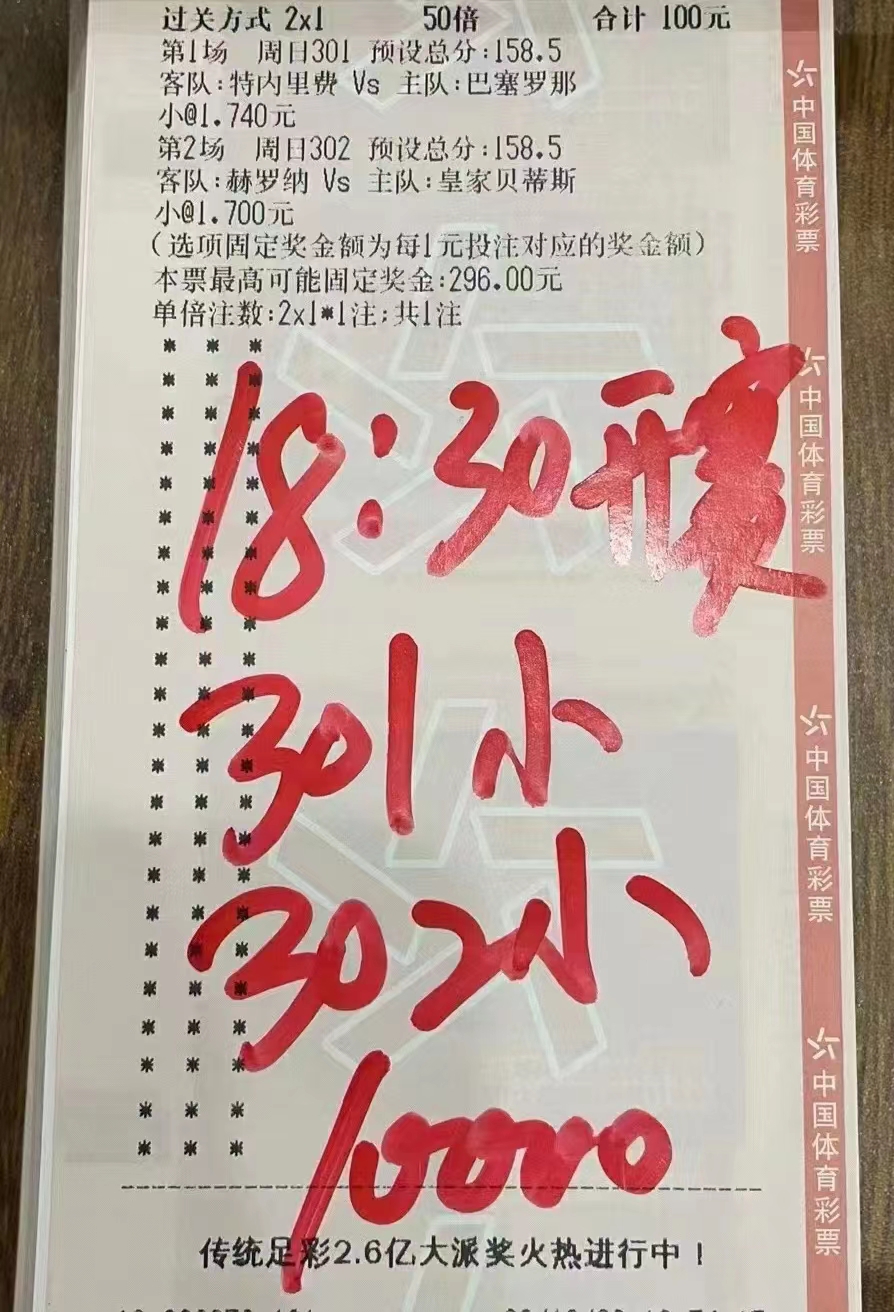 过关方式 2x1 50倍 合计 100元
第1场 周日301 预设总分:158.5
客队:特内里费 Vs 主队:巴塞罗那
小@1.740元
第2场 周日302 预设总分:158.5
客队:赫罗纳 Vs 主队:皇家贝蒂斯
小@1.700元
(选项固定奖金额为每1元投注对应的奖金额)
本票最高可能固定奖金:296.00元
单倍注数:2x1*1注;共1注
18:30开赛
301小
302小
10000
传统足彩2.6亿大派奖火热进行中!
中国体育彩票
中国体育彩票
中国体育彩票
中国体育彩票